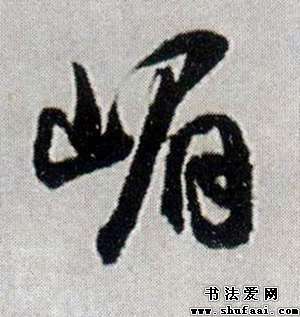 嵋
书法爱网
www.shufaai.com